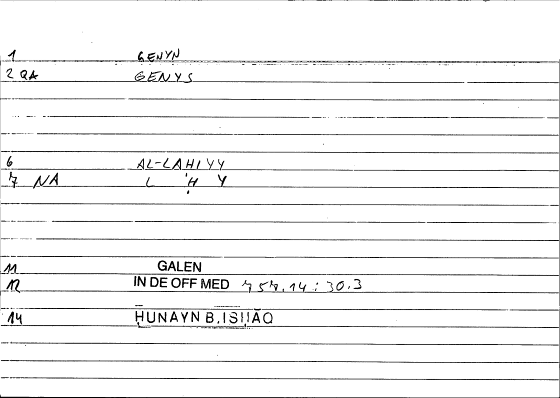 1 GENYN
2 QA GENYS
6 AL-LAHIYY
7 NA L H Y
11 GALEN
12 IN DE OFF MED 757,14 : 30.3
14 HUNAYN B. ISḤĀQ